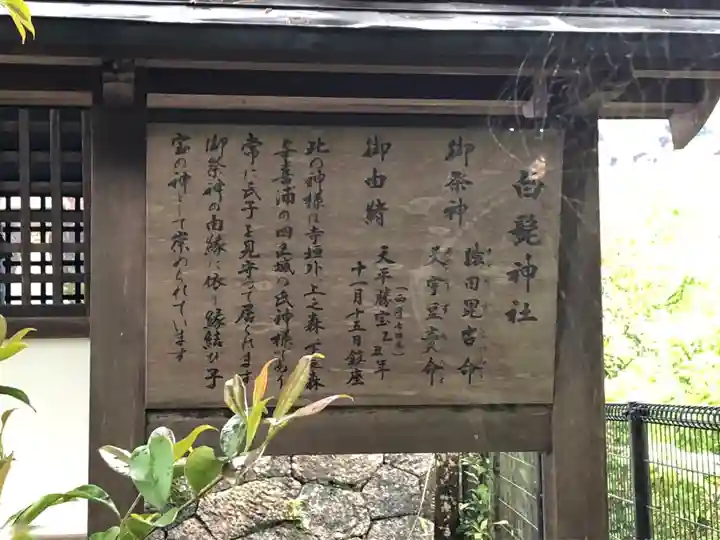 白髭神社
御祭神
猿田毘古命
天宇豆売命
御由緒
天平勝宝乙丑年
十一月十五日鎮座
此の神様は寺垣外上之森下之森
の四区域の氏神様であり
常に氏子を見守って居られます
御祭神の由縁に依り縁結び子
宝の神として崇められています